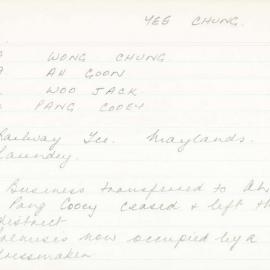 YEE CHUNG.
WONG CHUNG
AH GOON
WOO JACK
PANG COOEY
Railway Tce. Maylands.
Laundry.
Business transferred to Ah
Pang Cooey ceased & left th
district
Premises now occupied by a
dressmaker